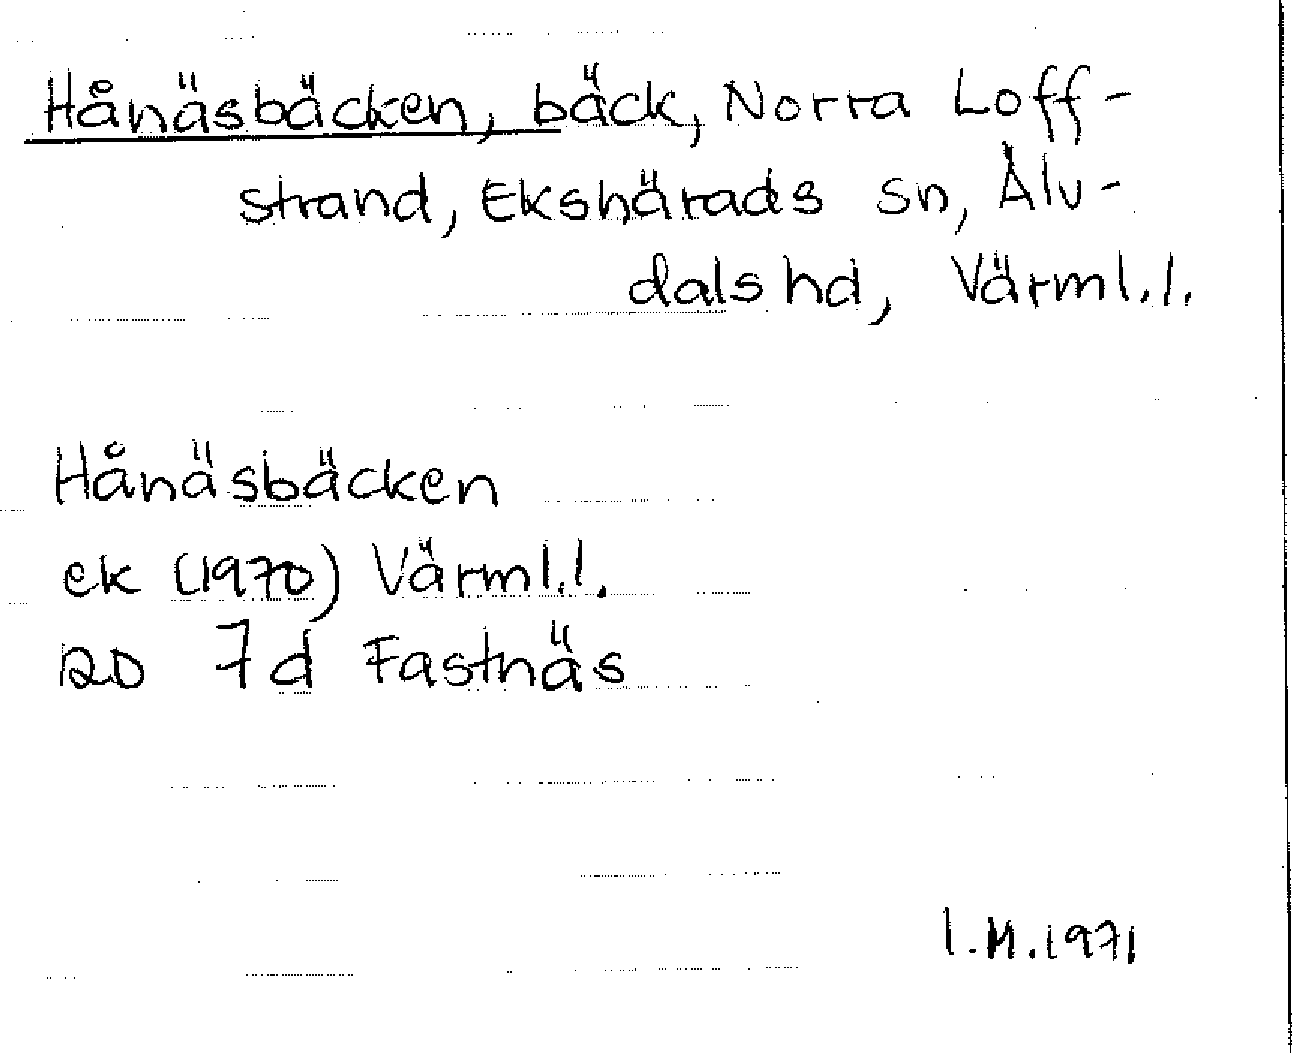 Hånäsbäcken, bäck, Norra Loff-
strand, Ekshärads sn, Älv-
dals hd, Värml.l.
Hånäsbäcken
ek (1970) Värml.l.
20 7d Fastnäs
I.M.1971